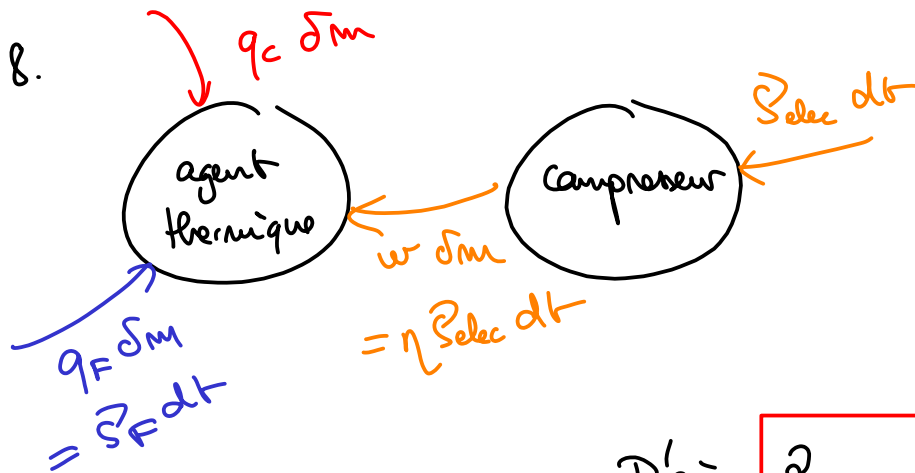 8.
q_C δm
agent
thermique
compresseur
P_elec dt
w δm
= η P_elec dt
q_F δm
= P_F dt
D'où